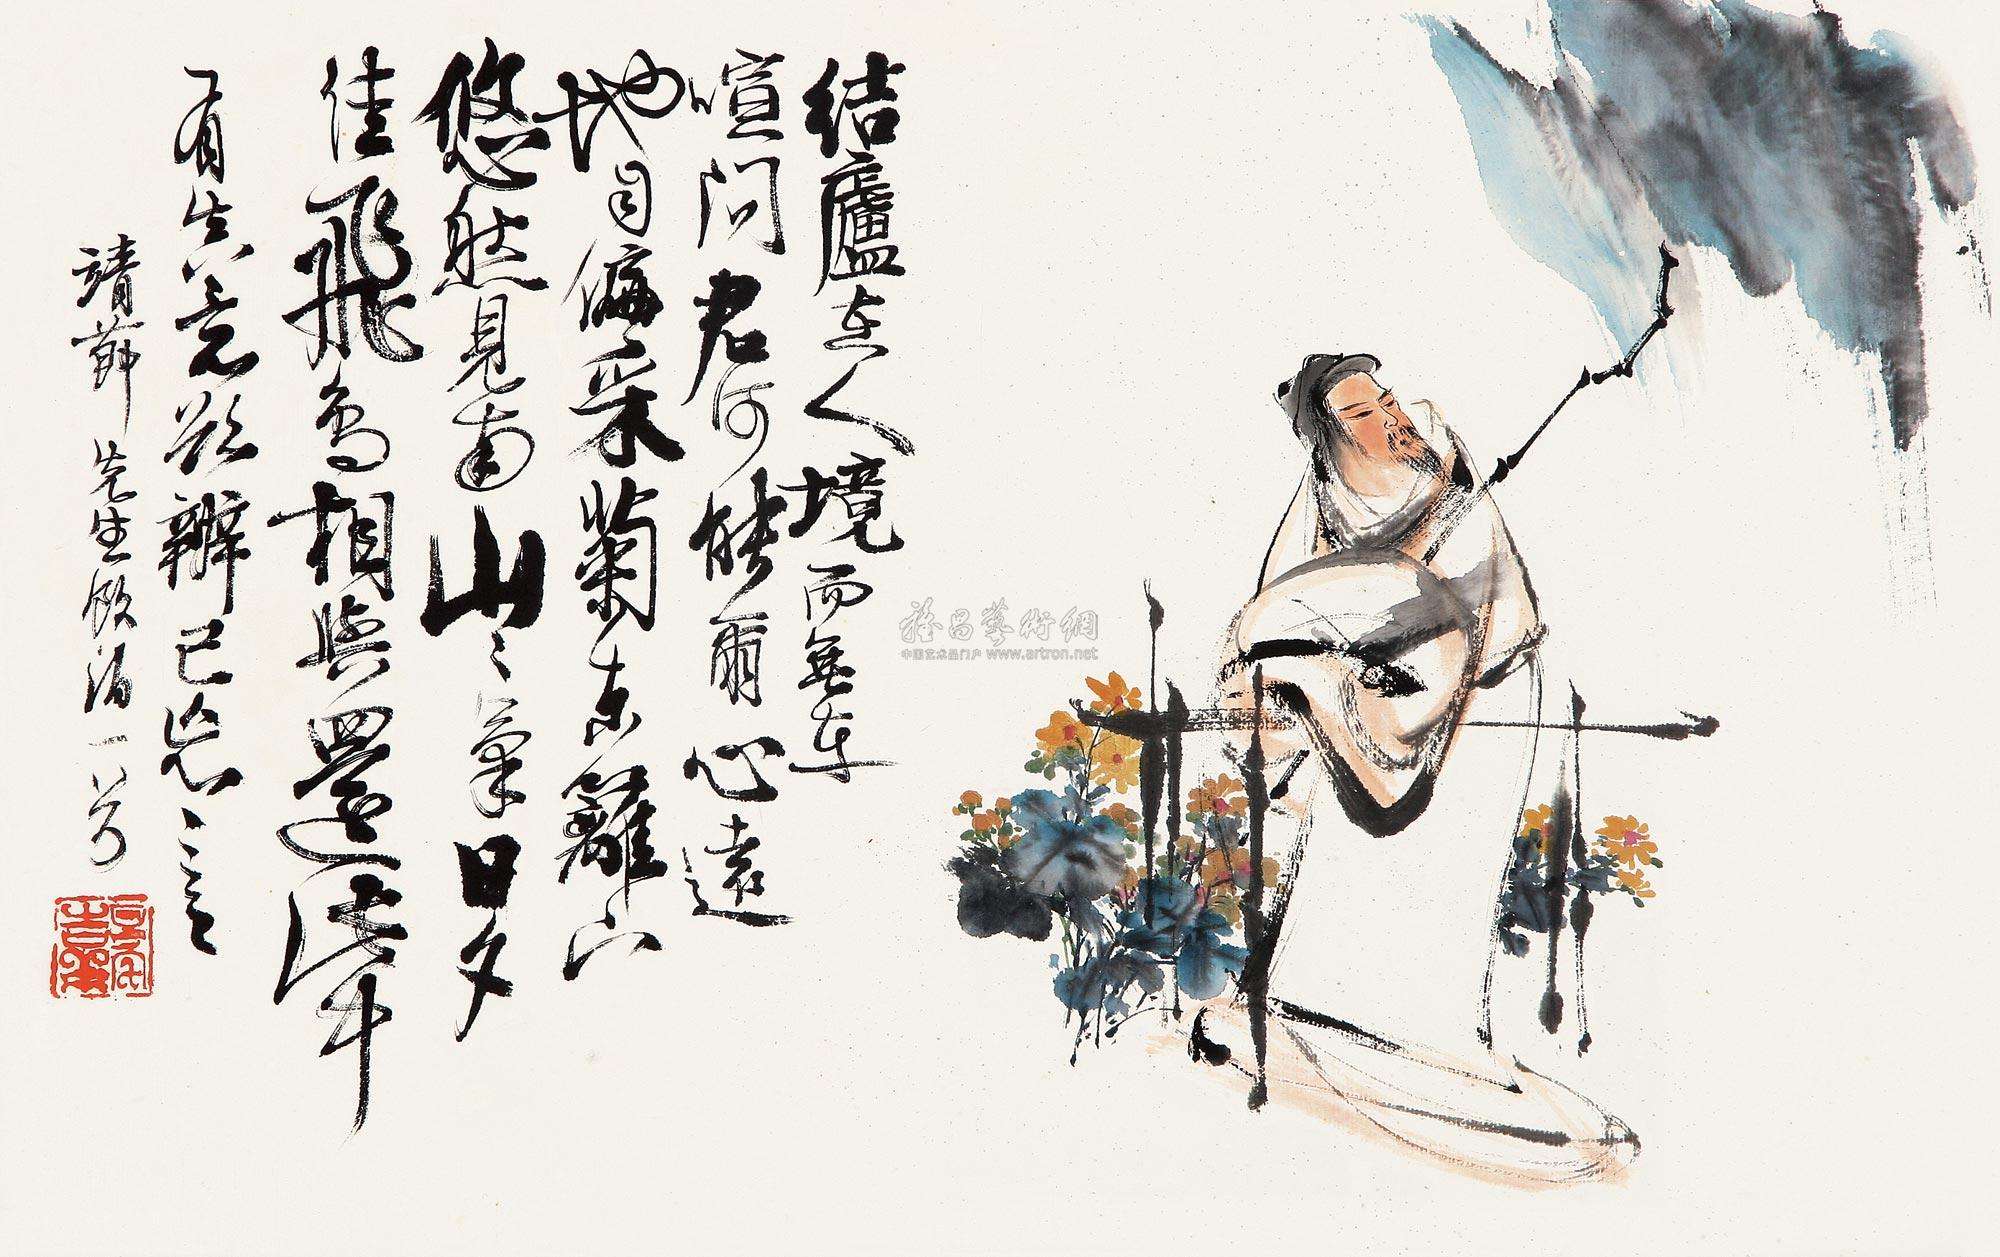 结廬在人境而無車
喧问君何能爾心遠
地自偏采菊東籬下
悠然見南山々氣日夕
佳飛鳥相與還此中
有真意欲辨已忘言
靖節先生飲酒一首
雅昌藝術網
中国艺术品门户 www.artron.net